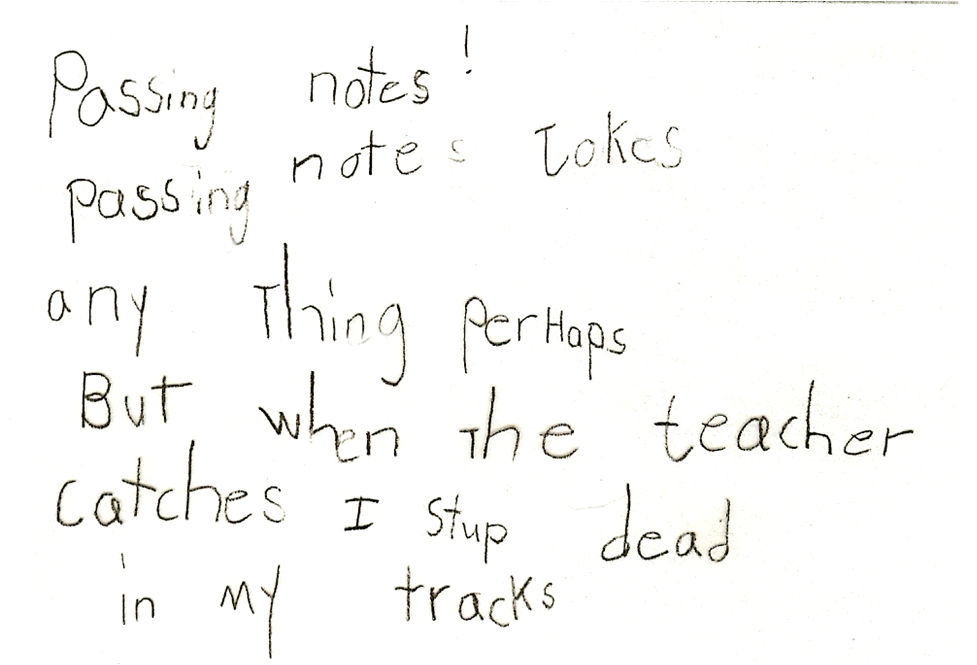 Passing notes!
passing notes Jokes
any Thing PerHaps
But when The teacher
catches I stup dead
in my tracks